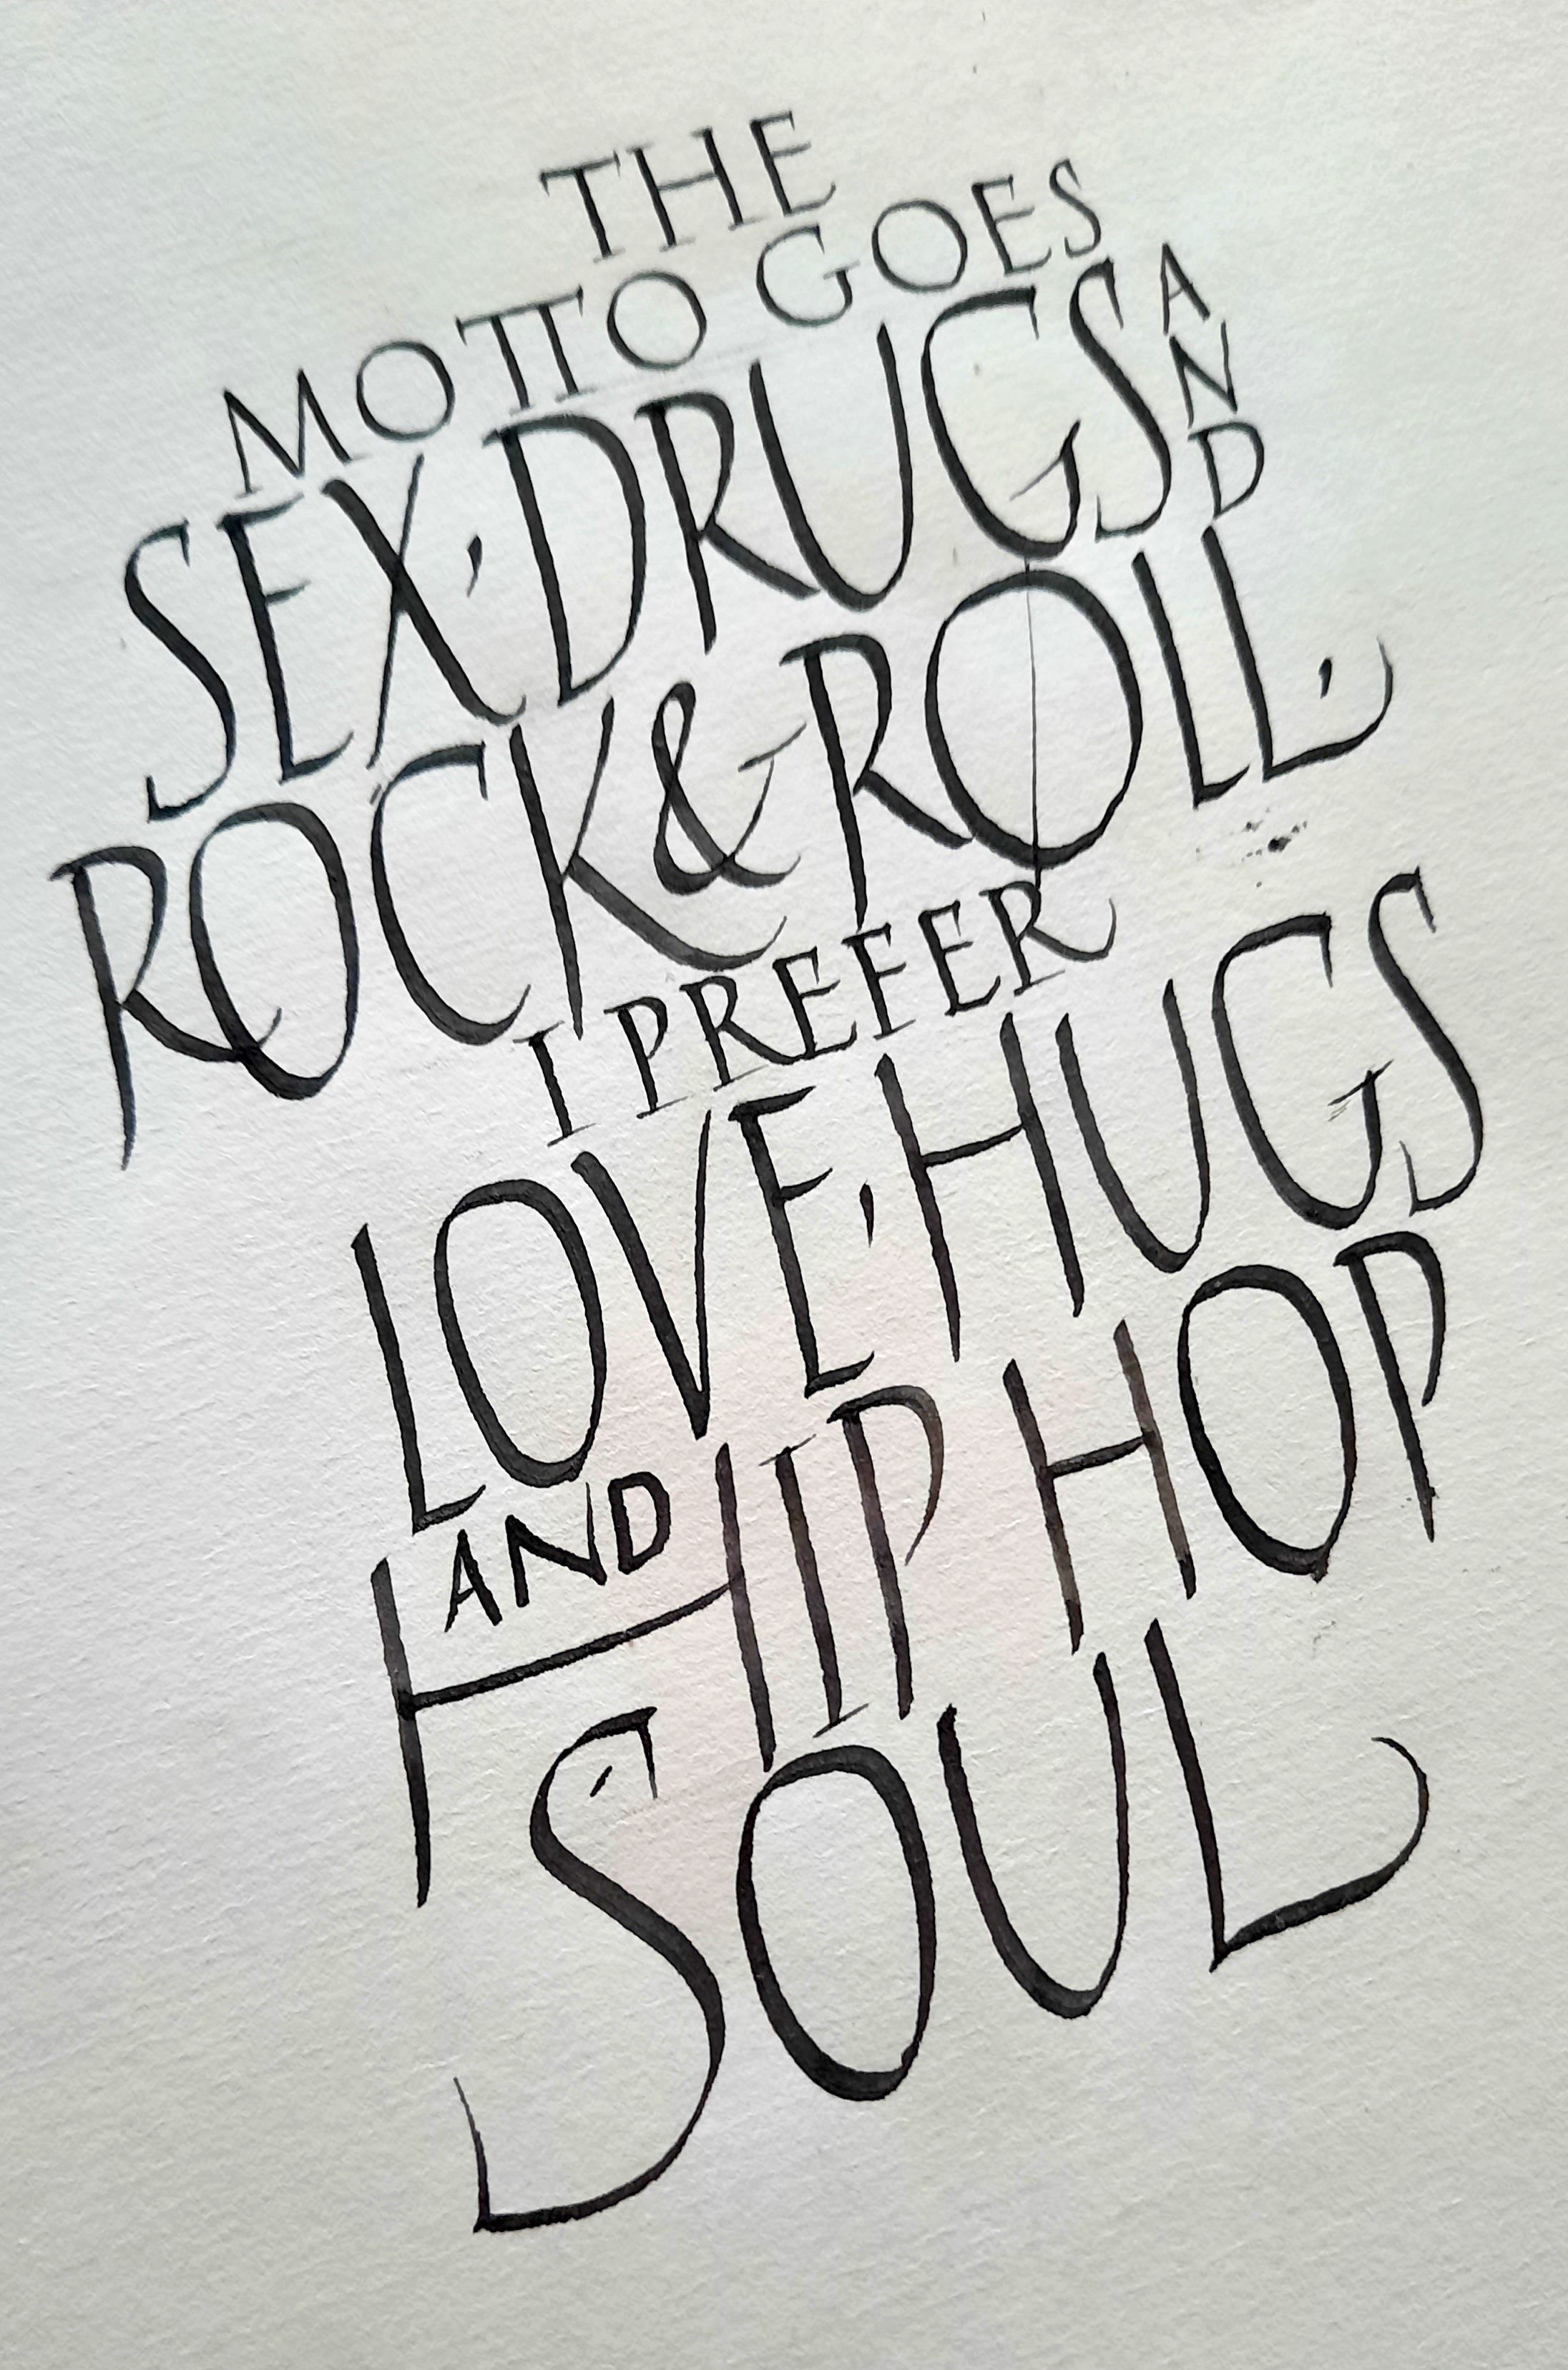 THE
MOTTO GOES
SEX, DRUGS AND
ROCK & ROLL,
I PREFER
LOVE, HUGS
AND HIP HOP
SOUL